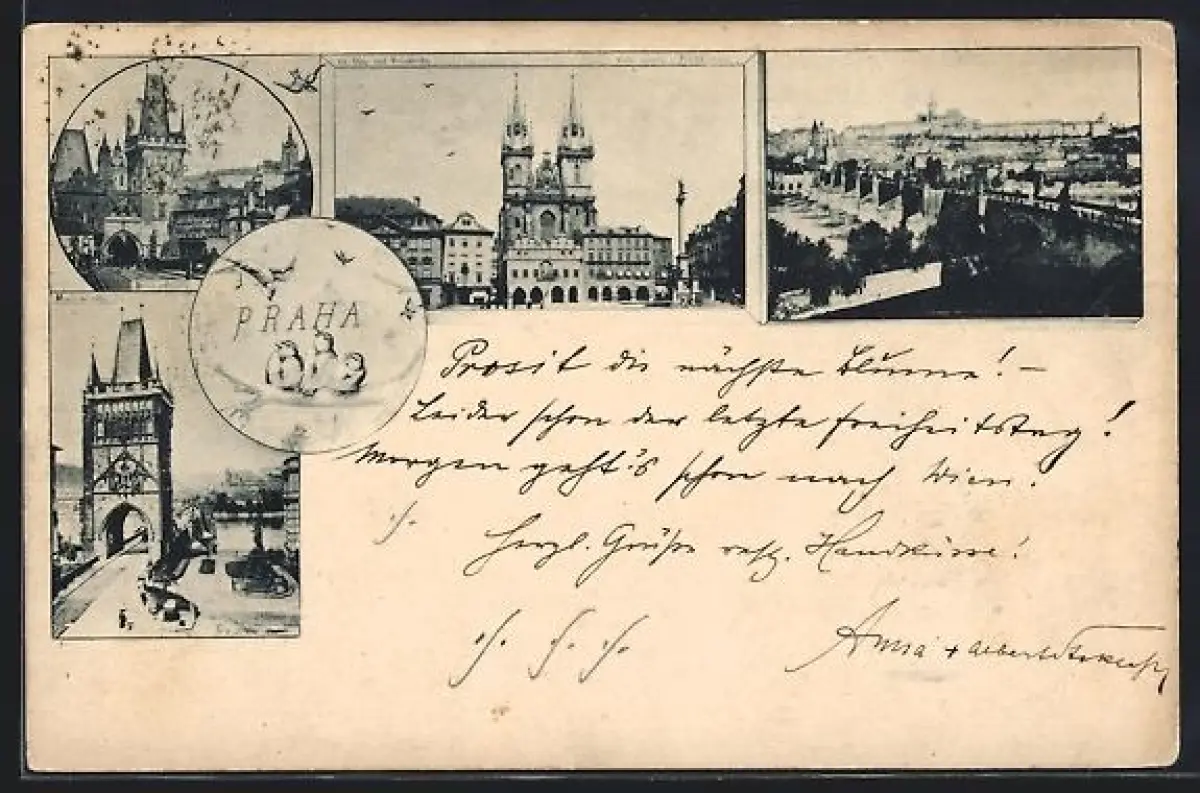 PRAHA
Prosit die nächste Blume! –
Leider schon der letzte Freiheitstag!
Morgen geht's schon nach Wien!
Herzl. Grüße resp. Handküsse!
Anna + Albert